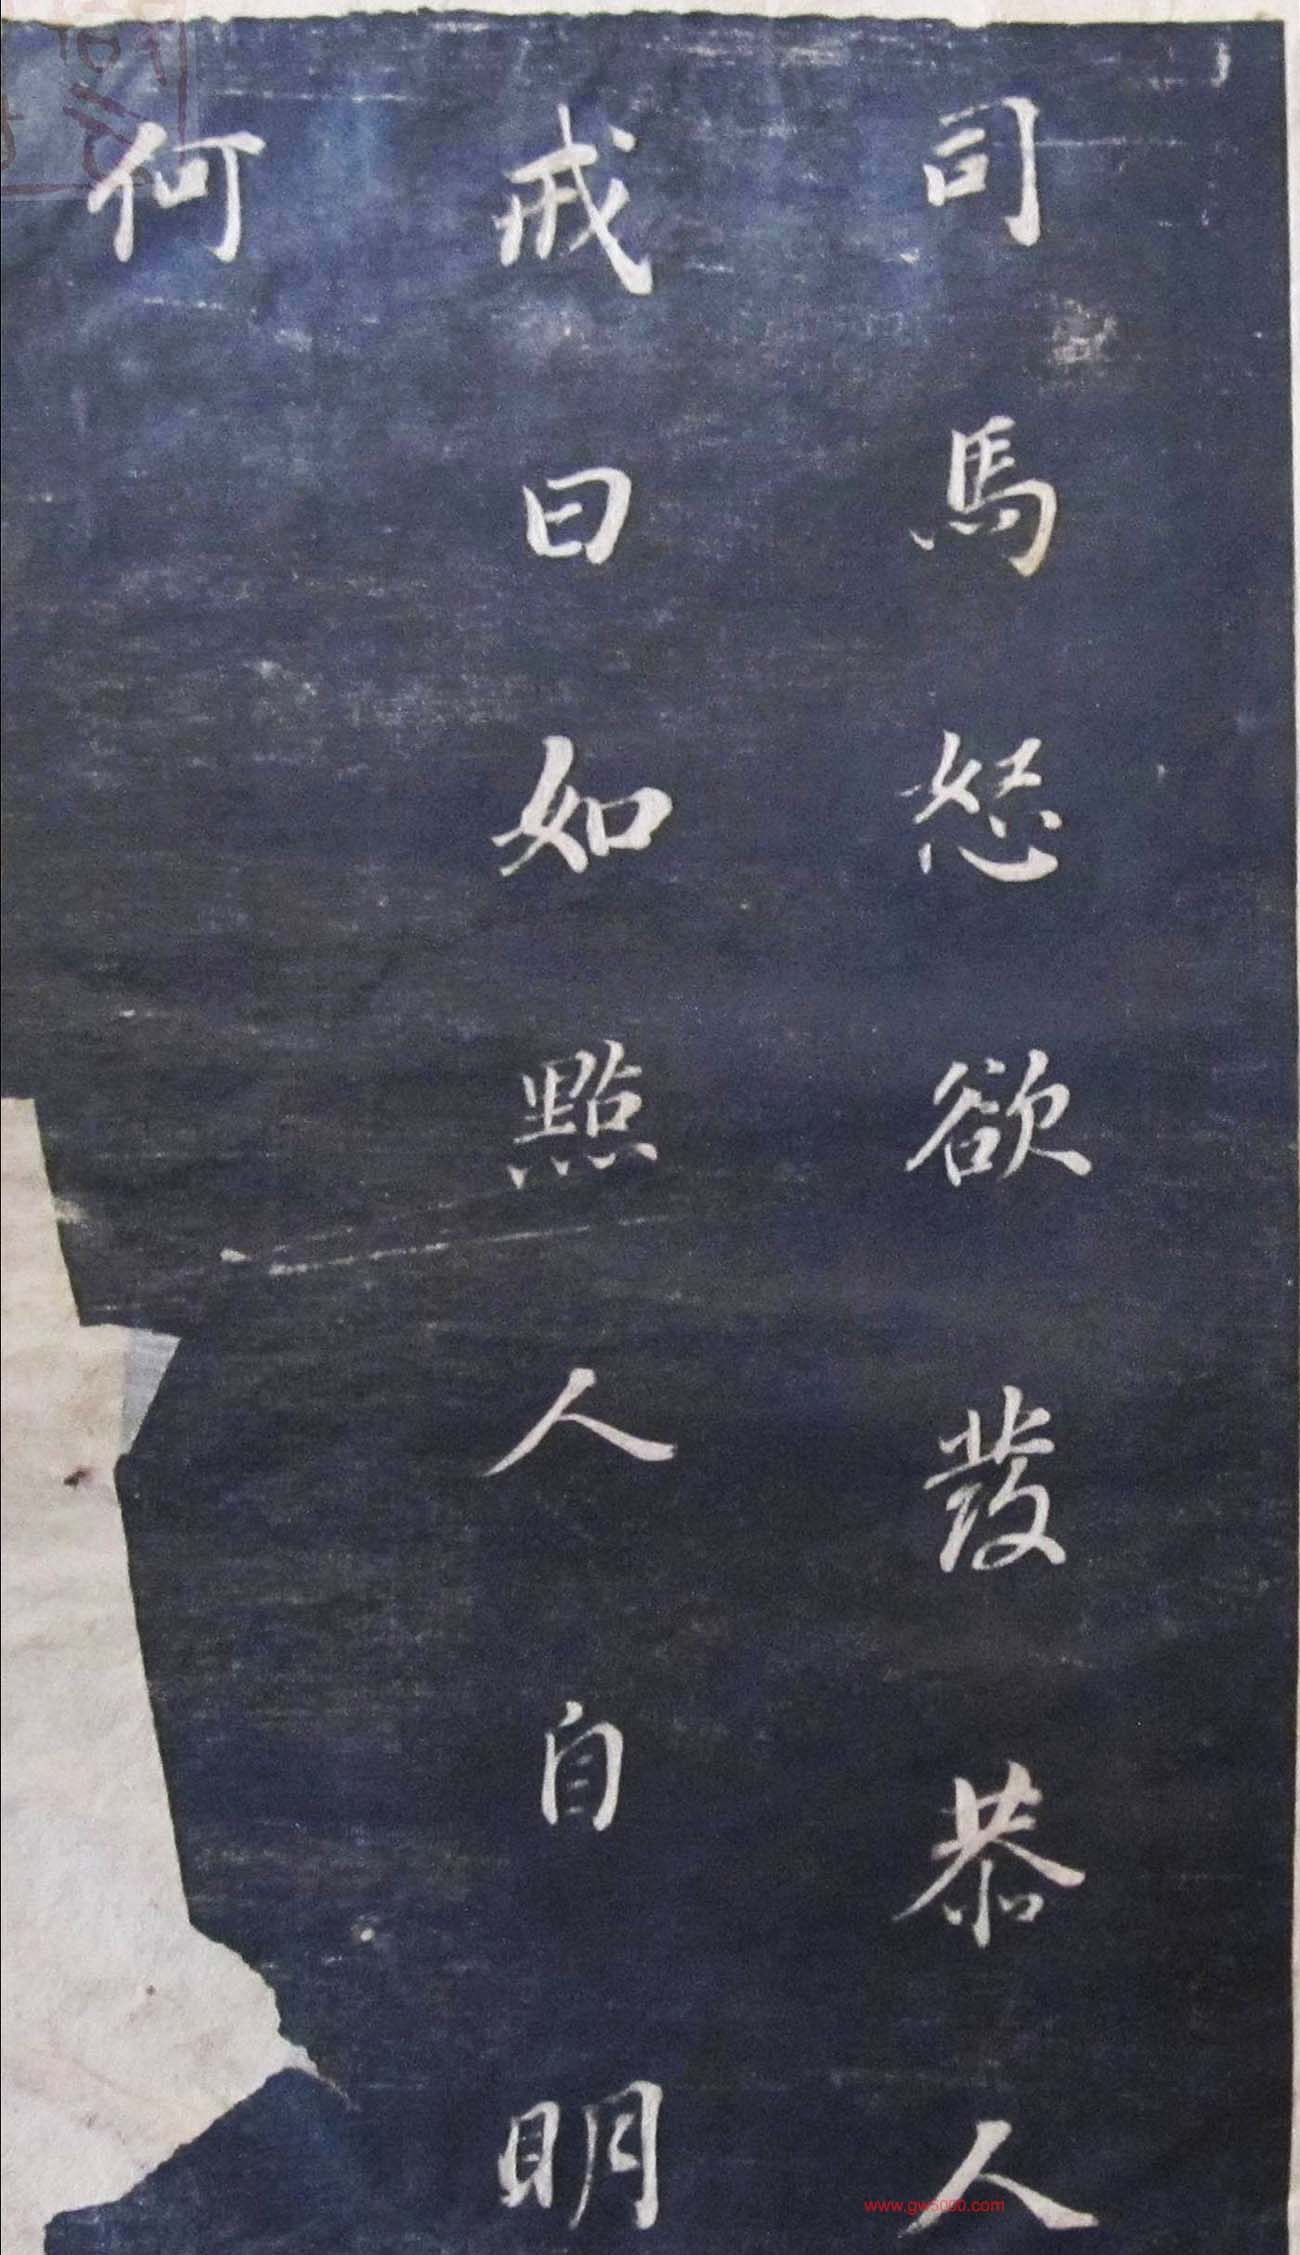 司馬怒欲發恭人
戒曰如點人自明
何
www.gw5000.com